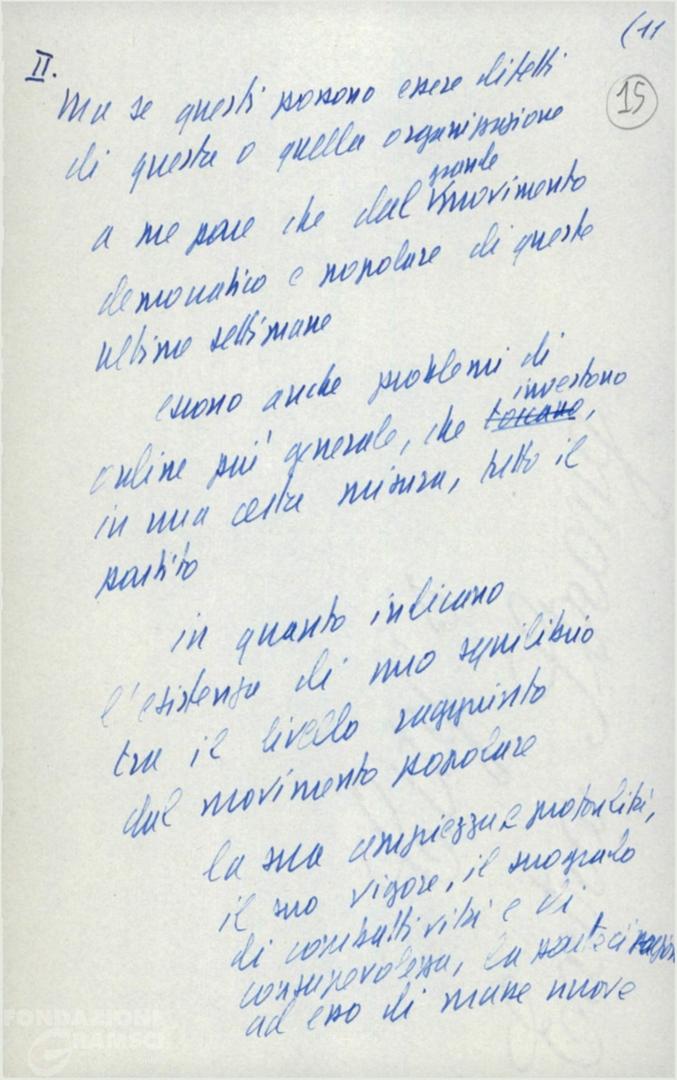 (11
15
II.
Ma se questi possono essere difetti
di questa o quella organizzazione
grande
a me pare che dal movimento
democratico e popolare di queste
ultime settimane
escono anche problemi di
investono
ordine più generale, che toccano,
in una certa misura, tutto il
partito
in quanto indicano
l'esistenza di uno squilibrio
tra il livello raggiunto
dal movimento popolare
la sua ampiezza e profondità,
il suo vigore, il suo grado
di combattività e di
consapevolezza, la partecipazione
ad esso di masse nuove
FONDAZIONE
GRAMSCI